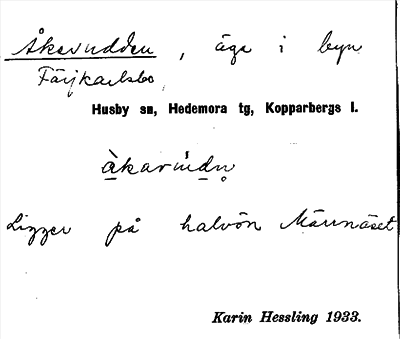 Åkerudden, äga i byn
Färjkarlsbo
Husby sn, Hedemora tg, Kopparbergs l.
Ligger på halvön Märrnäset
Karin Hessling 1933.